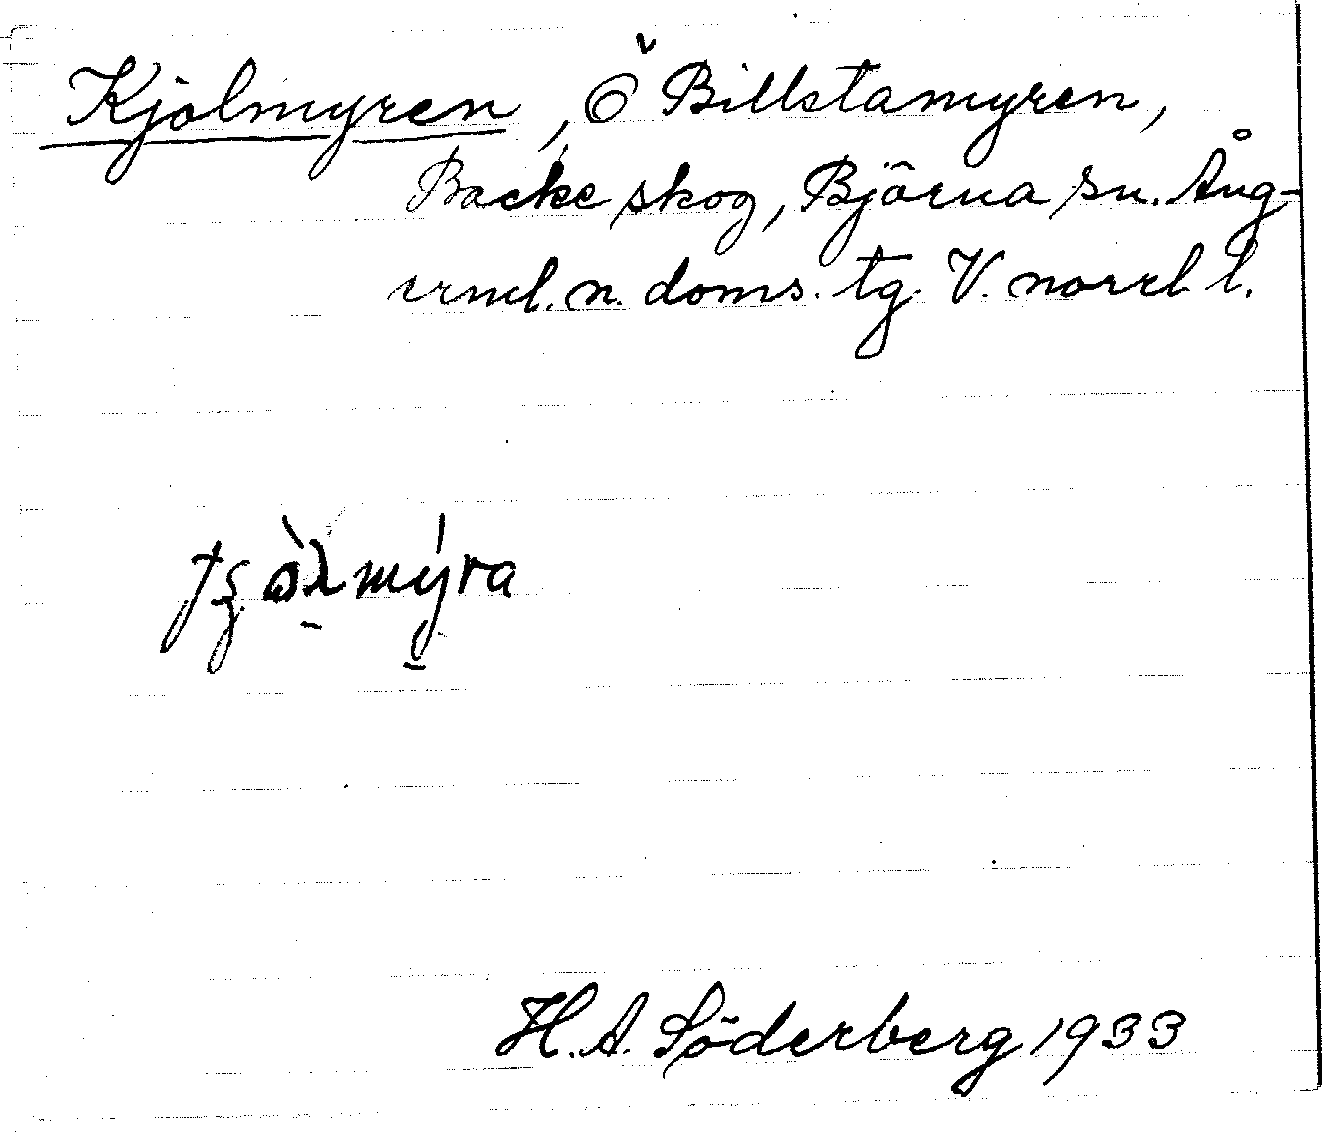 Kjolmyren, Ö Billstamyren,
Backe skog, Björna sn. Ång-
erml. n. doms. tg. V. norrl l.
H. A. Söderberg 1933